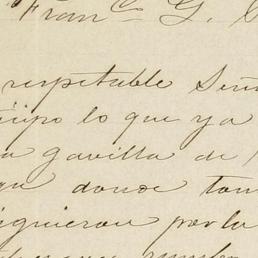 Fran.co G. C
respetable Señ
ipo lo que ya
a gavilla de
donde tom
iguieron por la